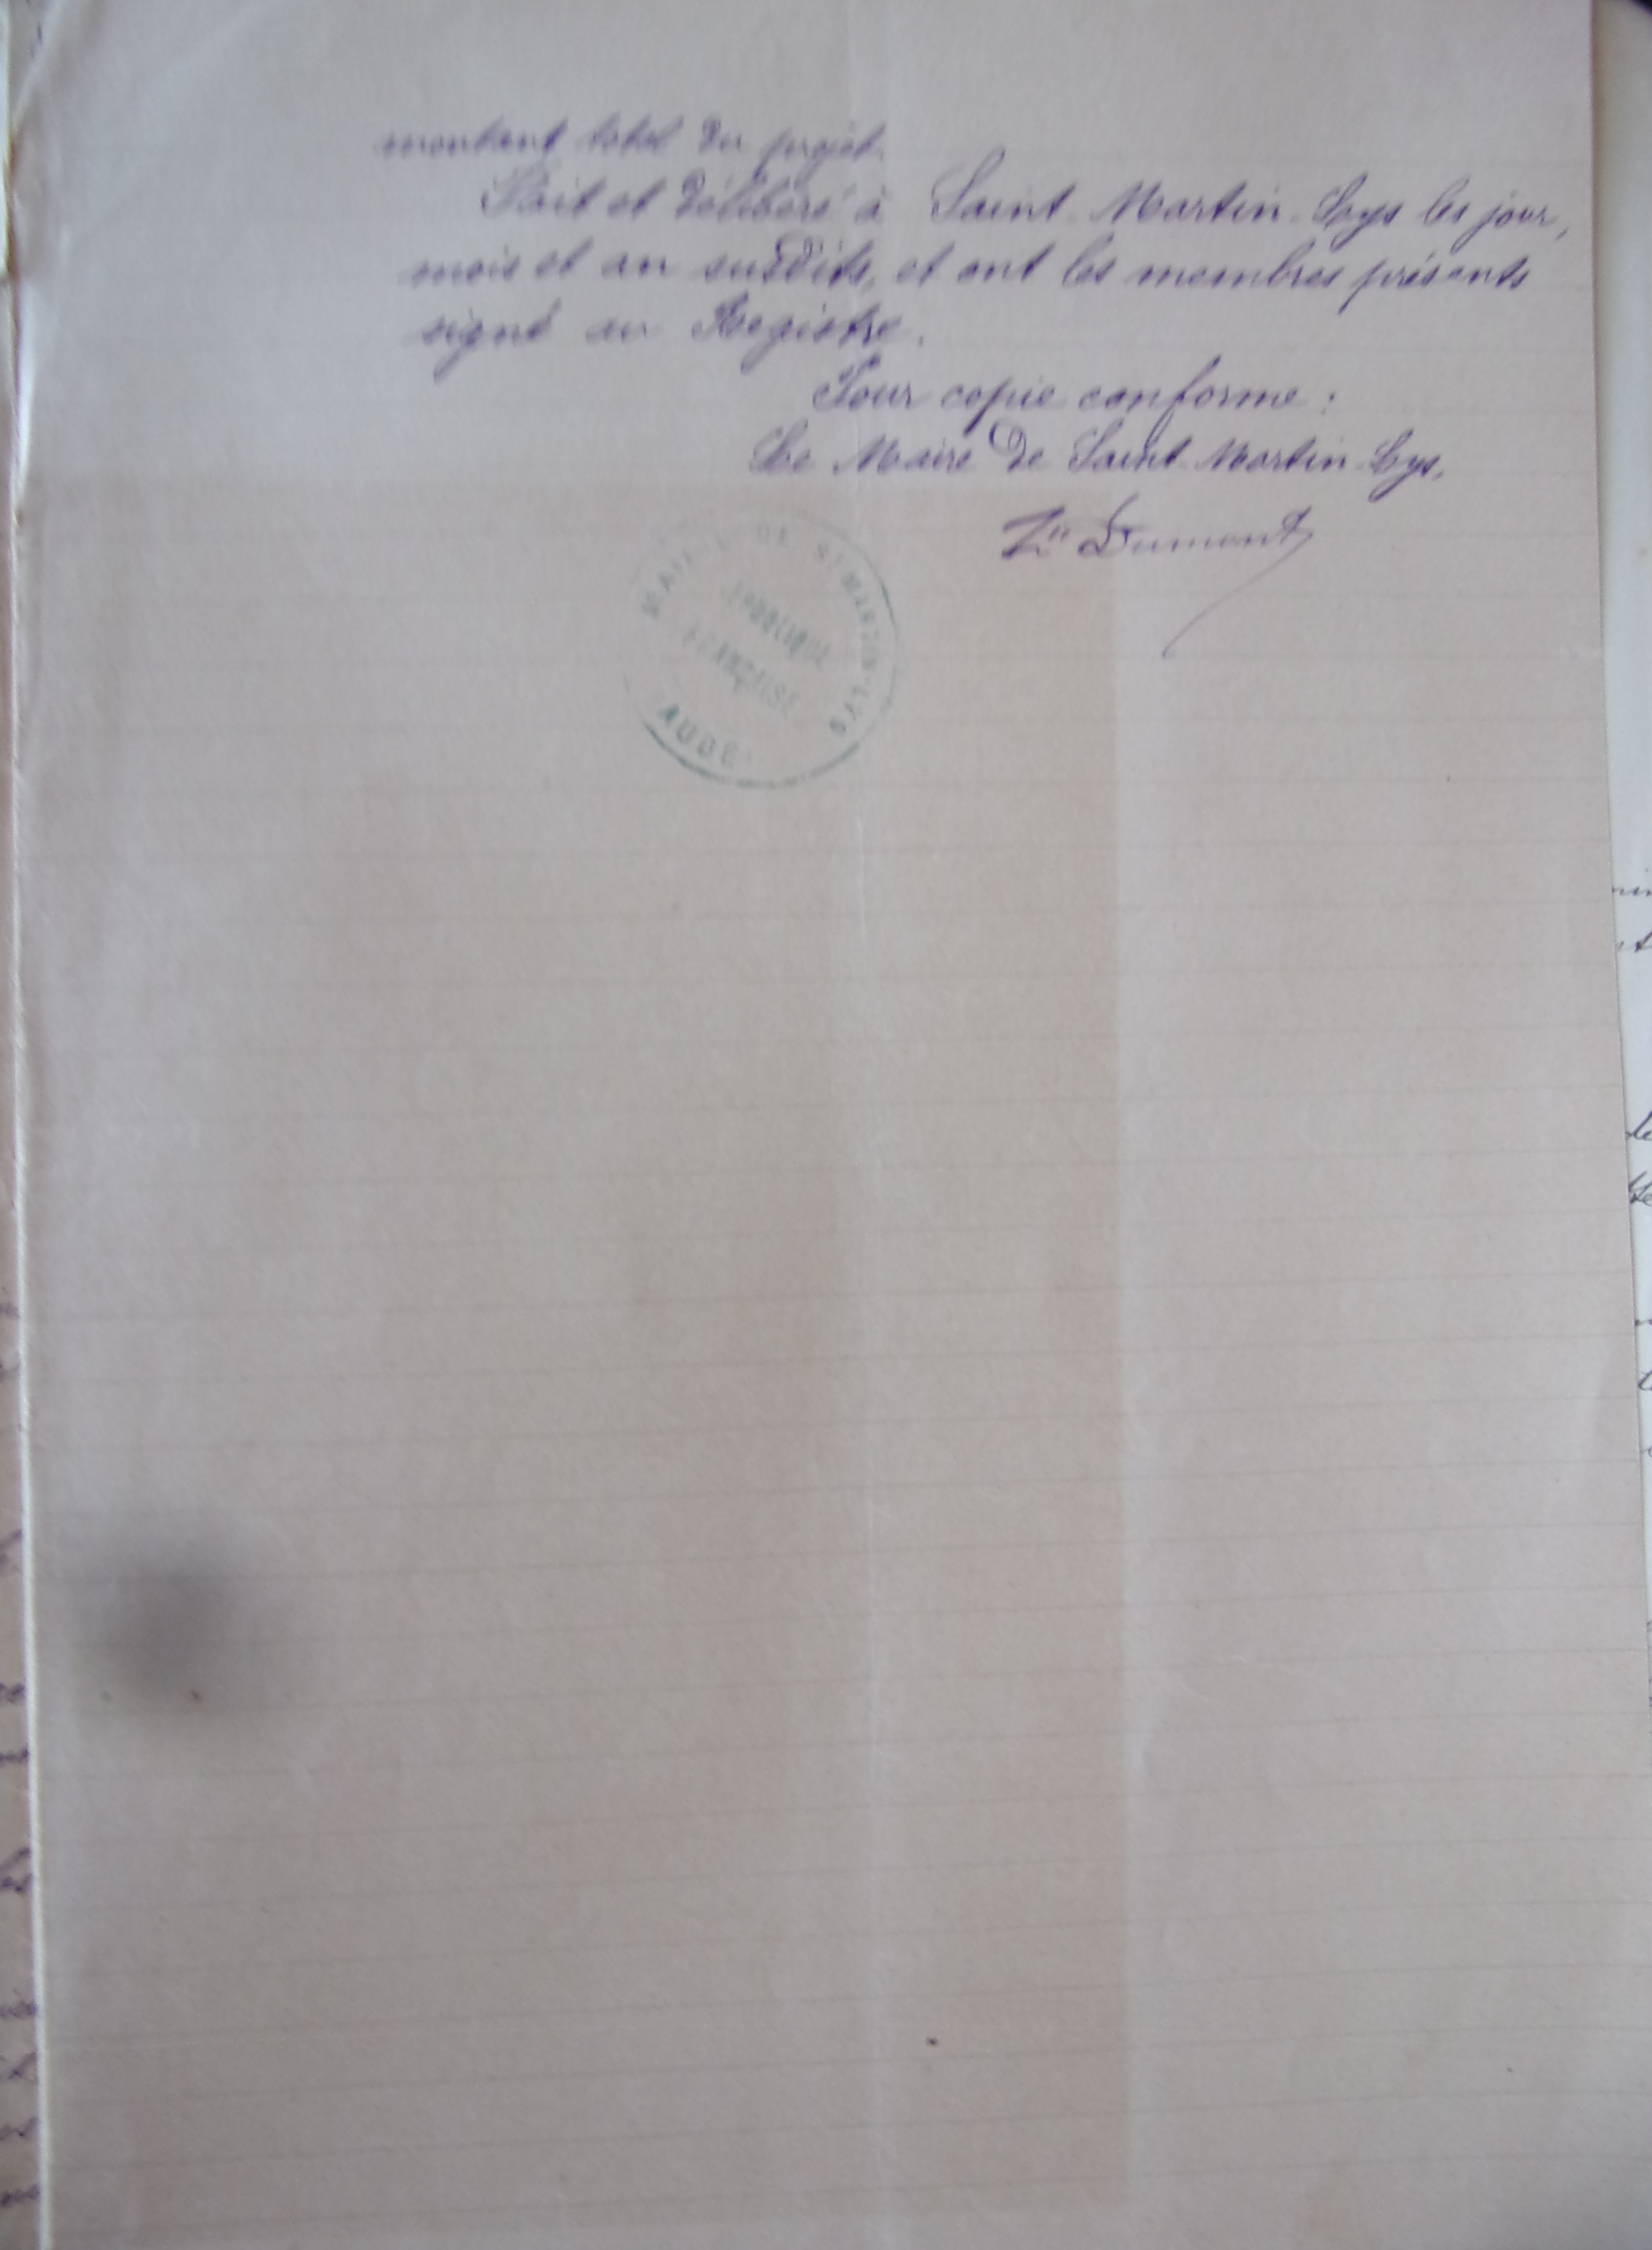 montant total du projet.
Fait et délibéré à Saint-Martin-Lys les jour,
mois et an susdits, et ont les membres présents
signé au Registre.
Pour copie conforme :
Le Maire de Saint-Martin-Lys,
Dumont
MAIRIE DE ST MARTIN-LYS
RÉPUBLIQUE
FRANÇAISE
AUDE